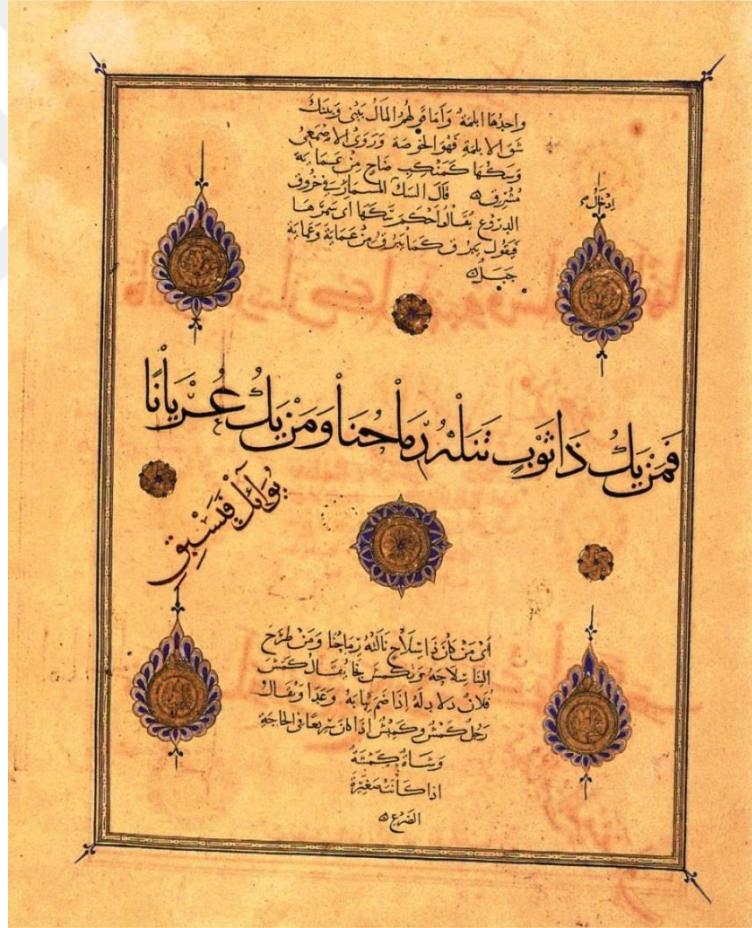 واحِدُهَا ابلمَةٌ وَأَمَا قَولهُمُ المَالُ بَيْنِى وَبَينَكَ
شَقَ الابلمَةِ فَهُوَ الخُوصَة وَرَوَى الاصْمَعِىُّ
وَسَكَّهَا كَمَنكِبِ ضَاحٍ مِن عَمَايَةَ
مُشْرِقِ قَالَ السَّكُ المسمَارُ فِي خُروق
الدِرُوع يُقَالُ أَحْكَمَ سَكَّهَا اى سَمَّرهَا
فَيَقُول يَبرُق كَمَا يَبرُقُ مِنْ عَمَايَةَ وَعَمَايَة
جَبَلٌ
فَمَنْ يَكُ ذَا ثَوْبٍ تَنَلْهُ رِمَاحُنَا وَمَنْ يَكُ عُرْيَانًا
يُوَائِلْ فَيَسْبِقِ
أىْ مَنْ كَانَ ذَا سِلَاحٍ نَالَتْهُ رِمَاحُنَا وَمَنْ طَرَحَ
الينَا سِلَاحَهُ وَيَنكمشُ نجَا يُقَالُ كَمَشَ
فُلَانٌ دلادِلَهُ إِذَا ضَمَّ ثِيَابَهُ وَعَدَا وَيُقَالُ
رَجُلٌ كَمْشٌ وَكَمِيْشٌ اذَا كانَ سَرِيعًا فى الحَاجَةِ
وَشَاةٌ كَمْشَةٌ
اذا كَانَتْ صَغيْرَةَ
الضَرْعِ